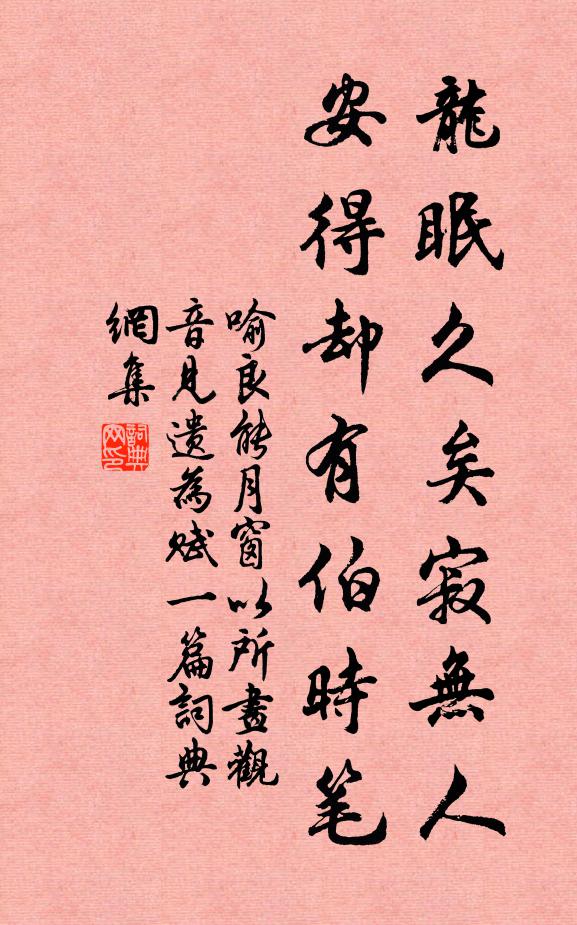 龍眠久矣寂無人
安得却有伯時笔
喻良能月窗以所畫觀
音見遺為賦一篇詞典
網集
詞典
网印